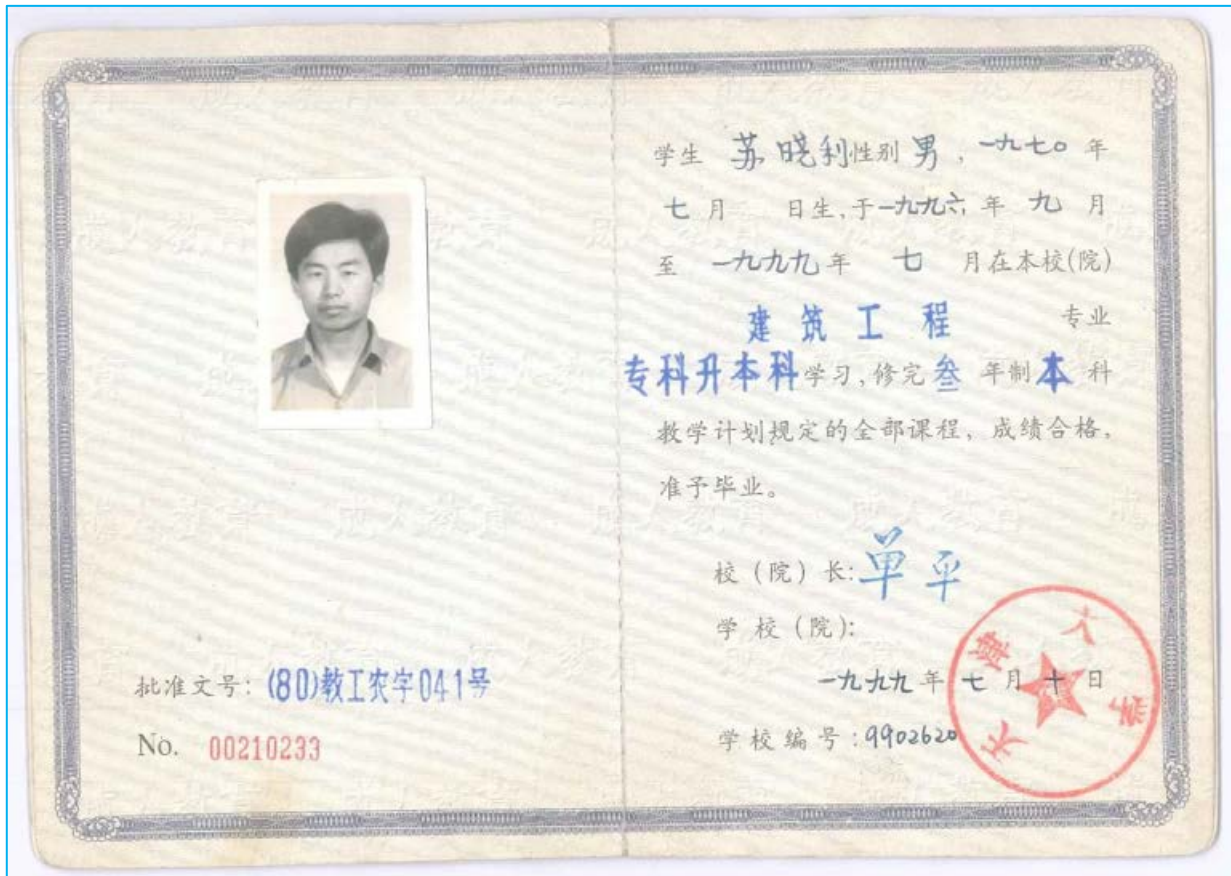 批准文号：(80)教工农字041号
No. 00210233
学生 苏晓利性别 男，一九七〇 年
七 月 日生，于一九九六 年 九 月
至 一九九九 年 七 月在本校(院)
建筑工程 专业
专科升本科学习，修完叁 年制本 科
教学计划规定的全部课程，成绩合格，
准予毕业。
校（院）长：单平
学校（院）：
一九九九 年 七 月 十 日
学校编号：9902620
天津大学
成人教育